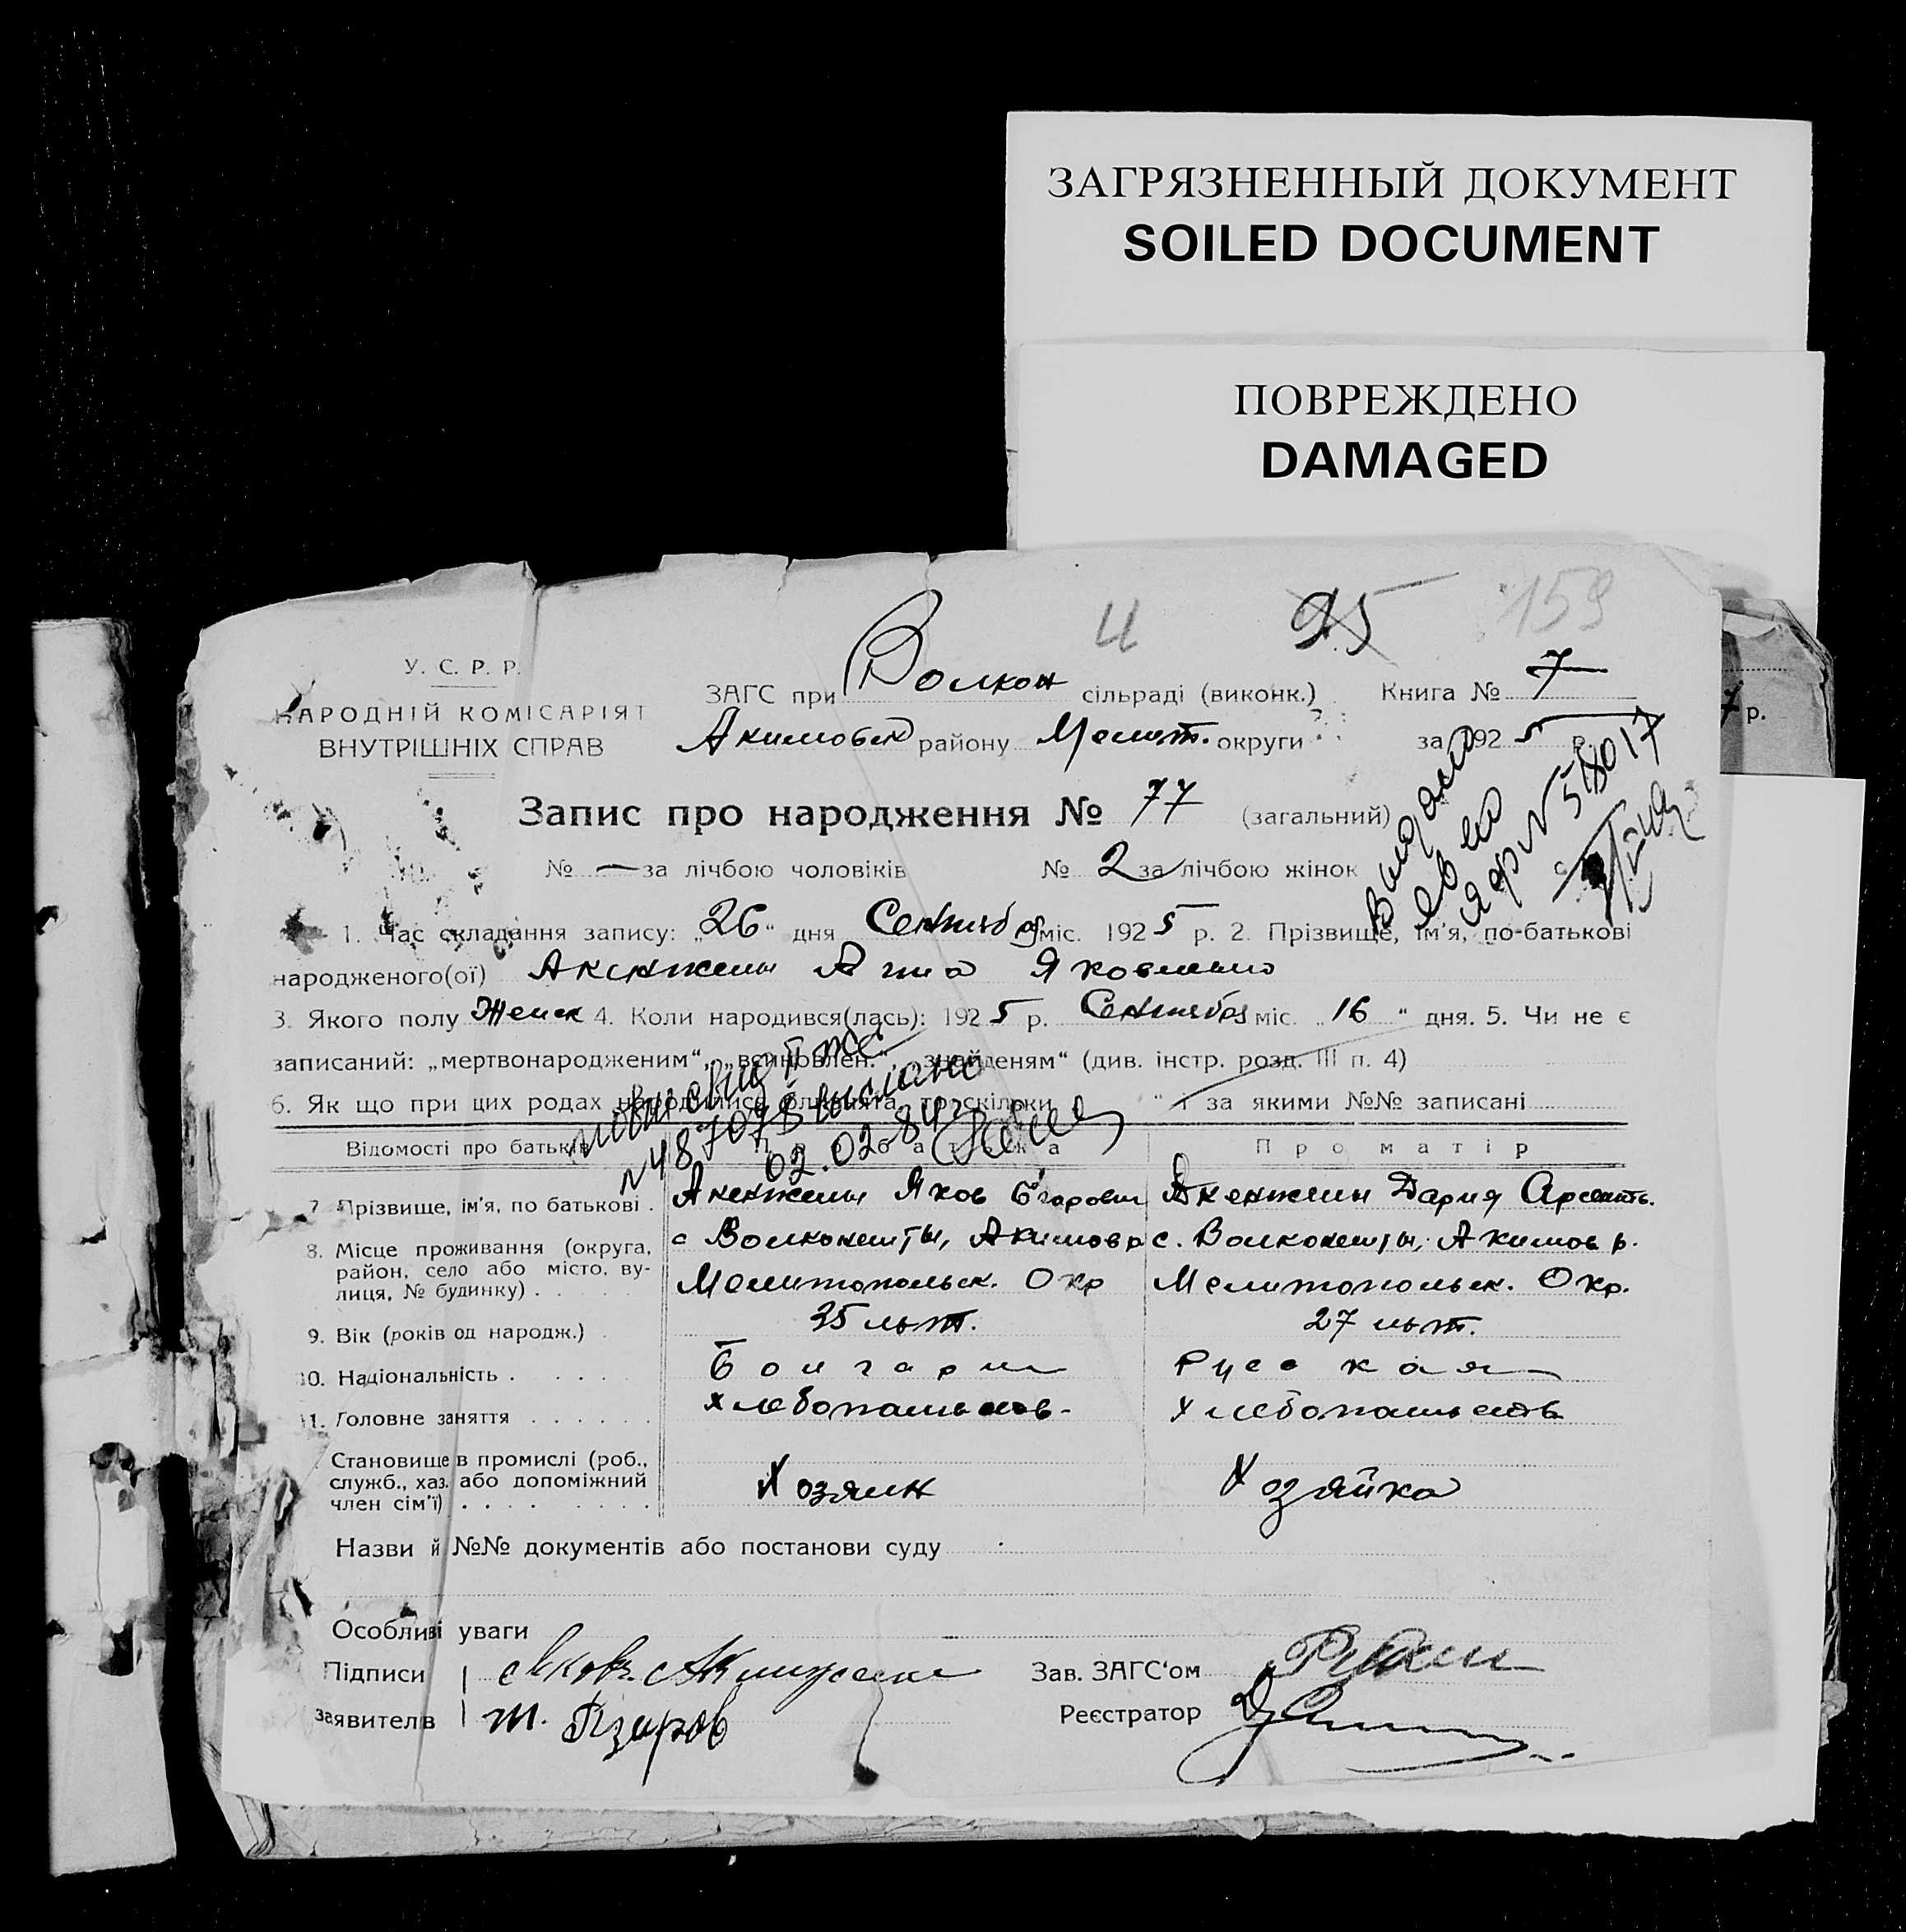 ЗАГРЯЗНЕННЫЙ ДОКУМЕНТ
SOILED DOCUMENT
ПОВРЕЖДЕНО
DAMAGED
4 95 159
У. С. Р. Р.
НАРОДНІЙ КОМІСАРІЯТ
ВНУТРІШНІХ СПРАВ
ЗАГС при Волкон сільраді (виконк.) Книга № 7
Акимовск району Мелит. округи за 1925 р.
7 р.
Запис про народження № 77 (загальний)
№ — за лічбою чоловіків № 2 за лічбою жінок
№ 518017
1. Час складання запису: „26“ дня Сентября міс. 1925 р. 2. Прізвище, ім'я, по-батькові
народженого(ої) Акенжелы Яковлевна
3. Якого полу Женск 4. Коли народився(лась): 1925 р. Сентября міс. „16“ дня. 5. Чи не є
записаний: „мертвонародженим“, „всиновлен.“, „знайденям“ (див. інстр. розд. III п. 4)
6. Як що при цих родах народилися близнята, то скільки “ і за якими №№ записані
02.02-84
Відомості про батьків Про батька Про матір
7. Прізвище, ім'я, по батькові . Акенжелы Яков Егорович Акенжелы Дария Арсенть.
8. Місце проживання (округа, район, село або місто, вулиця, № будинку) с Волконешты, Акимов р с. Волконешты, Акимов р.
Мелитопольск. Окр Мелитопольск. Окр.
9. Вік (років од народж.) . 25 льт. 27 льт.
10. Національність . Болгарин Русская
11. Головне заняття Хлебопашество Хлебопашество
Становище в промислі (роб.,
служб., хаз. або допоміжний
член сім'ї) Хозяин Хозяйка
Назви й №№ документів або постанови суду
Особливі уваги
Підписи Зав. ЗАГС'ом
заявителів Реєстратор